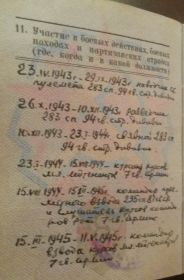 11. Участие в боевых действиях, боевых
походах и партизанских отрядах
(где, когда и в какой должности)
23.IV.1943г. - 29.IX.1943г.
пулемета 283 сп. 94 гв. стр. дивизии
26.X.1943 - 10.XII.1943. разведчик
283 сп. 94 гв. стр. дивизии
10.XII.1943 - 23.I.1944. связной 283 сп
94 гв. стр. дивизии
23.I.1944 - 15.VIII.1944 - курсант курсов
мл. лейтенантов 7 гв. армии
15.VIII.1944 - 15.III.1945. командир
взвода
и слушатель курсов
7 гв. армии
15.III.1945 - 11.V.1945. командир
взвода курсов мл. лейтенантов
7 гв. армии